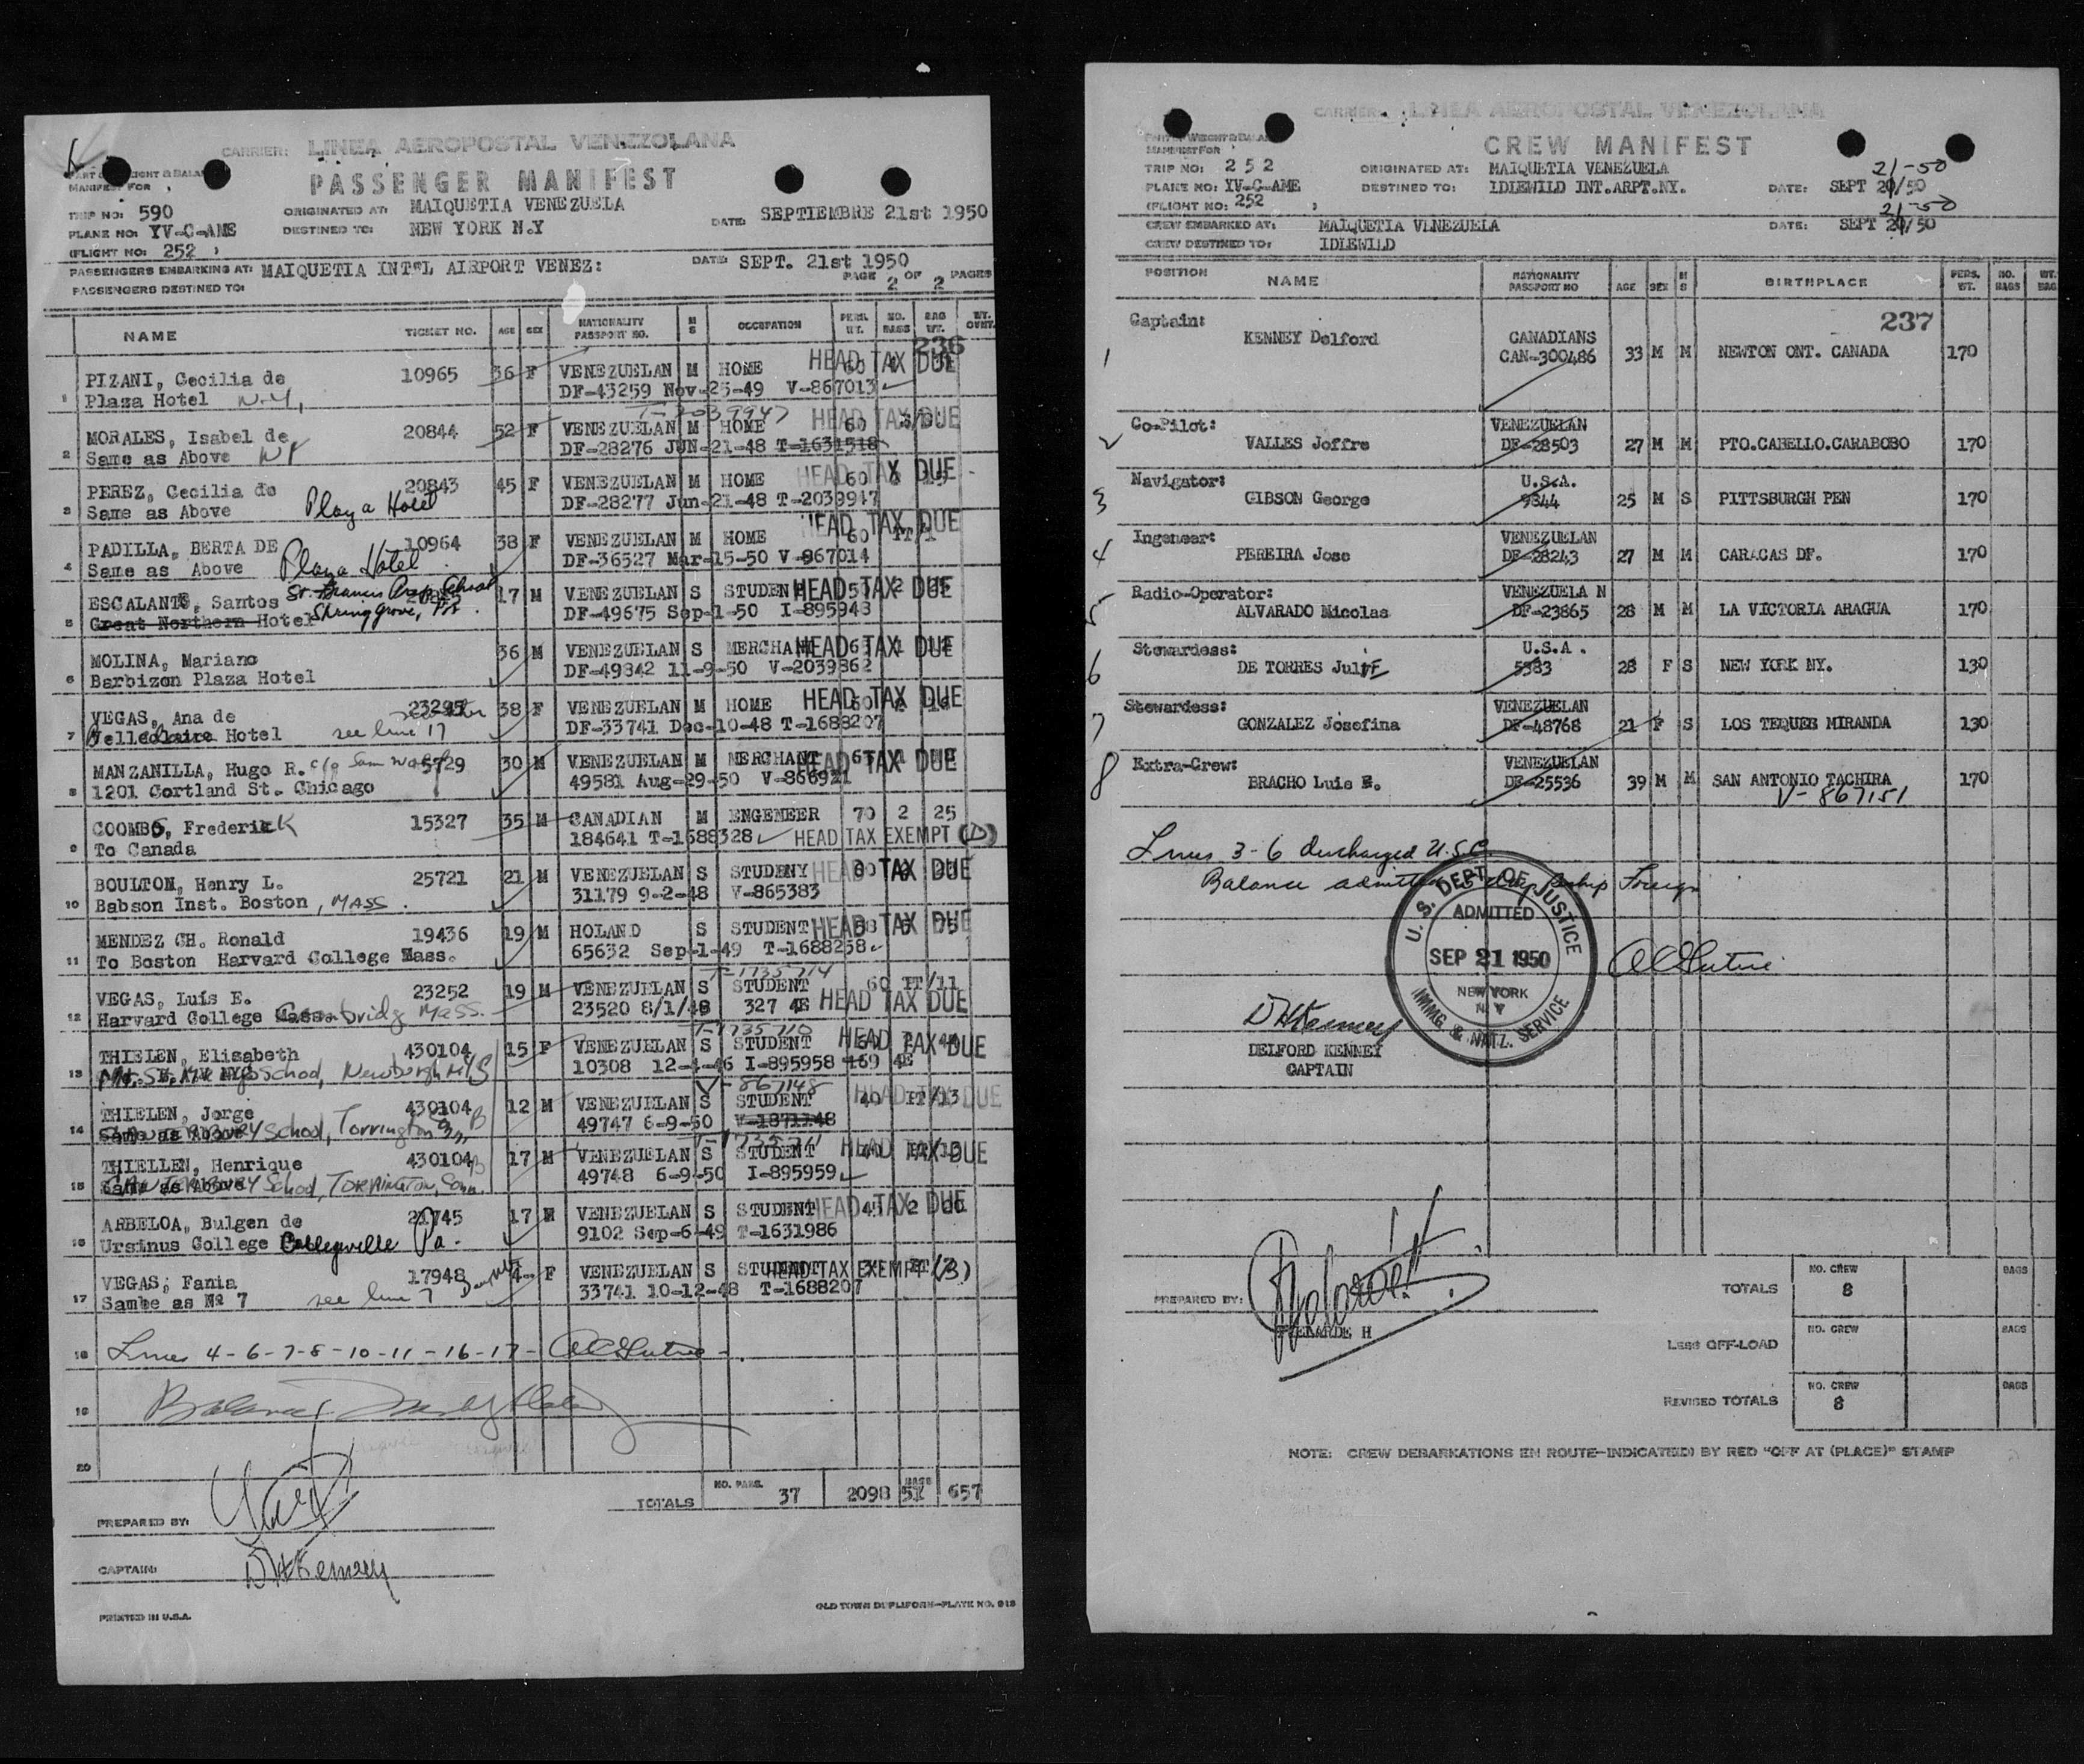 CARRIER: LINEA AEROPOSTAL VENEZOLANA
PASSENGER MANIFEST
MANIFEST FOR
TRIP NO: 590 ORIGINATED AT: MAIQUETIA VENEZUELA DATE: SEPTIEMBRE 21st 1950
PLANE NO: YV-C-AME DESTINED TO: NEW YORK N.Y
(FLIGHT NO: 252 )
PASSENGERS EMBARKING AT: MAIQUETIA INT"L AIRPORT VENEZ: DATE: SEPT. 21st 1950
PASSENGERS DESTINED TO: PAGE 2 OF 2 PAGES
NAME TICKET NO. AGE SEX NATIONALITY PASSPORT NO. M S OCCUPATION PERS. WT. NO. BAGS BAG WT. WT. OVWT.
236
PIZANI, Cecilia de 10965 36 F VENEZUELAN M HOME HEAD TAX DUE
1 Plaza Hotel N.Y, DF-43259 Nov-25-49 V-867013
T-2039947
MORALES, Isabel de 20844 52 F VENEZUELAN M HOME 60 HEAD TAX DUE
2 Same as Above NY DF-28276 JUN-21-48 T-1631518
PEREZ, Cecilia de 20843 45 F VENEZUELAN M HOME 60 HEAD TAX DUE
3 Same as Above Playa Hotel DF-28277 Jun-21-48 T-2039947
PADILLA, BERTA DE 10964 38 F VENEZUELAN M HOME 60 HEAD TAX DUE
4 Same as Above Playa Hotel DF-36527 Mar-15-50 V-867014
ESCALANTE, Santos St. Francis Prep School 17 M VENEZUELAN S STUDEN HEAD TAX DUE
5 Great Northern Hotel Spring grove, Pa. DF-49675 Sep-1-50 I-895943
MOLINA, Mariano 36 M VENEZUELAN S MERCHANT HEAD TAX DUE
6 Barbizon Plaza Hotel DF-49342 11-9-50 V-2039862
VEGAS, Ana de 23295 38 F VENEZUELAN M HOME HEAD TAX DUE
7 Belleclaire Hotel see line 17 DF-33741 Dec-10-48 T-1688207
MANZANILLA, Hugo R. c/o Sam 5729 30 M VENEZUELAN M MERCHANT HEAD TAX DUE
8 1201 Cortland St. Chicago 49581 Aug-29-50 V-866921
COOMBS, Frederick 15327 35 M CANADIAN M ENGENEER 70 2 25
9 To Canada 184641 T-1688328 HEAD TAX EXEMPT (D)
BOULTON, Henry L. 25721 21 M VENEZUELAN S STUDENY HEAD TAX DUE
10 Babson Inst. Boston, MASS. 31179 9-2-48 V-865383
MENDEZ CH. Ronald 19436 19 M HOLAND S STUDENT HEAD TAX DUE
11 To Boston Harvard College Mass. 65632 Sep-1-49 T-1688258
T-1735714
VEGAS, Luis E. 23252 19 M VENEZUELAN S STUDENT 60 PT/11
12 Harvard College Cambridg Mass. 23520 8/1/48 327 4E HEAD TAX DUE
T-1735710
THIELEN, Elisabeth 430104 15 F VENEZUELAN S STUDENT HEAD TAX DUE
13 School, Newburgh NY 10308 12-4-46 I-895958 469 4E
V-867148
THIELEN, Jorge 430104 12 M VENEZUELAN S STUDENT 40 PT/13 HEAD TAX DUE
14 Same as Above School, Torrington 49747 6-9-50 V-1871148
THIELLEN, Henrique 430104 17 M VENEZUELAN S STUDENT HEAD TAX DUE
15 CANTERBURY School, TORRINGTON, Conn. 49748 6-9-50 I-895959
ARBELOA, Bulgen de 21745 17 M VENEZUELAN S STUDENT 45 2 HEAD TAX DUE
16 Ursinus College Collegeville Pa. 9102 Sep-6-49 T-1631986
VEGAS; Fania 17948 4 F VENEZUELAN S STUDENT HEAD TAX EXEMPT (B)
17 Sambe as Nº 7 see line 7 33741 10-12-48 T-1688207
18 Lines 4-6-7-8-10-11-16-17-
19 Balance
20
TOTALS NO. PASS. 37 2098 BAGS 51 657
PREPARED BY:
CAPTAIN: DHKenney
PRINTED IN U.S.A. OLD TOWN DUPLIFORM-PLATE NO. 918
CARRIER: LINEA AEROPOSTAL VENEZOLANA
CREW MANIFEST
MANIFEST FOR
21-50
TRIP NO: 252 ORIGINATED AT: MAIQUETIA VENEZUELA
PLANE NO: YV-C-AME DESTINED TO: IDLEWILD INT.ARPT.NY. DATE: SEPT 20/50
(FLIGHT NO: 252 ) 21-50
CREW EMBARKED AT: MAIQUETIA VENEZUELA DATE: SEPT 20/50
CREW DESTINED TO: IDLEWILD
POSITION NAME NATIONALITY PASSPORT NO AGE SEX M S BIRTHPLACE PERS. WT. NO. BAGS WT. BAG
237
Captain:
1 KENNEY Delford CANADIANS CAN-300486 33 M M NEWTON ONT. CANADA 170
Co-Pilot:
2 VALLES Joffre VENEZUELAN DF-28503 27 M M PTO.CABELLO.CARABOBO 170
Navigator:
3 GIBSON George U.S.A. 9344 25 M S PITTSBURGH PEN 170
Ingenear:
4 PEREIRA Jose VENEZUELAN DF-28243 27 M M CARACAS DF. 170
Radio-Operator:
5 ALVARADO Nicolas VENEZUELA N DF-23865 28 M M LA VICTORIA ARAGUA 170
Stewardess:
6 DE TORRES Julie U.S.A. 5383 28 F S NEW YORK NY. 130
Stewardess:
7 GONZALEZ Josefina VENEZUELAN DF-48768 21 F S LOS TEQUES MIRANDA 130
Extra-Crew:
8 BRACHO Luis E. VENEZUELAN DF-25536 39 M M SAN ANTONIO TACHIRA 170
V-867151
Lines 3-6 discharged U.S.C.
Balance admitted Foreign
U.S. DEPT. OF JUSTICE
ADMITTED
SEP 21 1950
NEW YORK
N Y
IMMG & NATZ. SERVICE
DHKenney
DELFORD KENNEY
CAPTAIN
PREPARED BY:
TOTALS NO. CREW 8 BAGS
LESS OFF-LOAD NO. CREW BAGS
REVISED TOTALS NO. CREW 8 BAGS
NOTE: CREW DEBARKATIONS EN ROUTE-INDICATED BY RED "OFF AT (PLACE)" STAMP